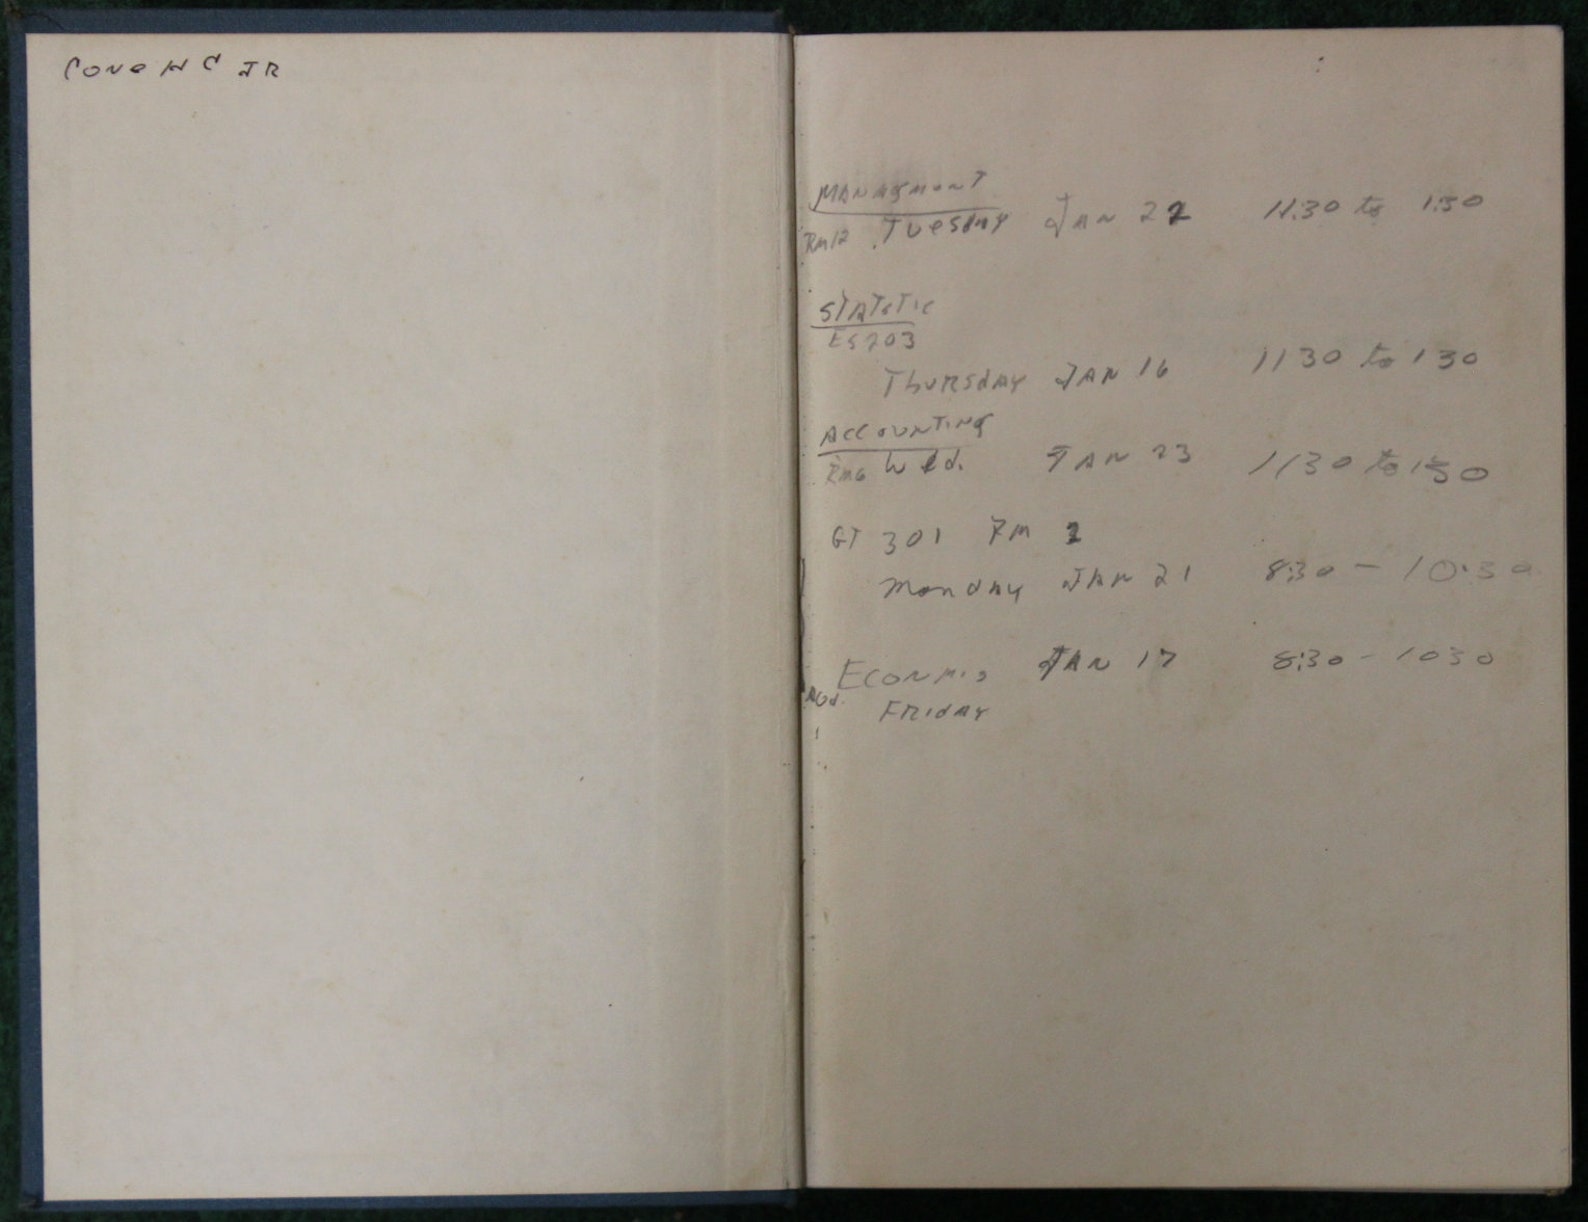 CONE W C JR
MANAGMENT
RM12 Tuesday JAN 22 11:30 to 1:30
STATSTIC
ES203
Thursday JAN 16 11 30 to 1 30
ACCOUNTING
RM6 Wed. JAN 23 11 30 to 1 30
GT 301 RM 2
Monday JAN 21 8:30 - 10:30
JAN 17 8:30 - 10 30
FRIDAY